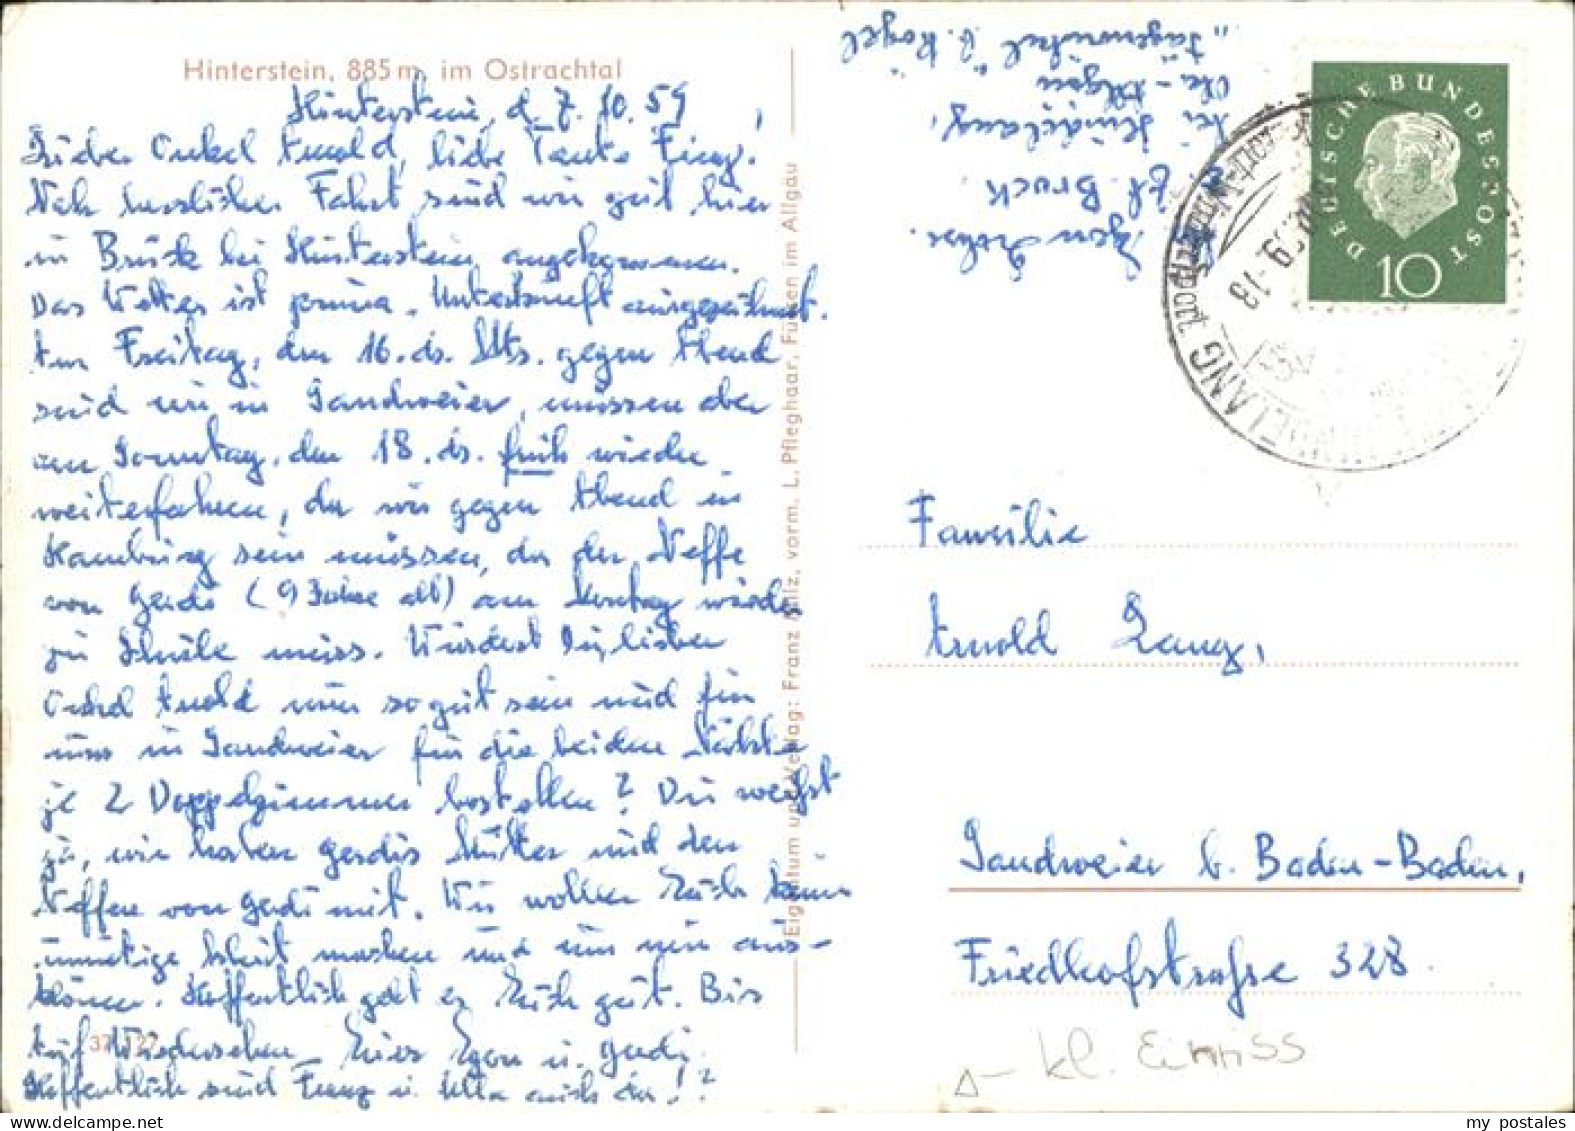 Hinterstein, 885 m, im Ostrachtal
Hinterstein, d. 7. 10. 59
Lieber Onkel Arnold, liebe Tante Finy!
Nach herrlicher Fahrt sind wir gut hier
in Bruck bei Hinterstein angekommen.
Das Wetter ist prima. Unterkunft ausgezeichnet.
Am Freitag, den 16. ds. Mts. gegen Abend
sind wir in Sandweier, müssen aber
am Sonntag, den 18. ds. früh wieder
weiterfahren, da wir gegen Abend in
Hamburg sein müssen, da der Neffe
von Gerdi (9 Jahre alt) am Montag wieder
zur Schule muss. Würdest Du, lieber
Onkel Arnold nun so gut sein und für
uns in Sandweier für die beiden Nächte
je 2 Doppelzimmer bestellen? Du weißt
ja, wir haben Gerdis Mutter und den
Neffen von Gerdi mit. Wir wollen Euch keine
unnötige Arbeit machen und um ein aus-
können. Hoffentlich geht es Euch gut. Bis
Auf Wiedersehen Euer Egon u. Gerdi
Hoffentlich sind Franz u. Ulla auch da!?
37 127
Eigentum und Verlag: Franz Milz, vorm. L. Pfleghaar, Füssen im Allgäu
Egon
Bruck
bei Hindelang,
Allgäu
"Jägerwinkel" b. Kögel
DEUTSCHE BUNDESPOST
10
HINDELANG
9.10.59-18
Familie
Arnold Lang,
Sandweier b. Baden-Baden,
Friedhofstraße 328.
kl. Einriss
my postales